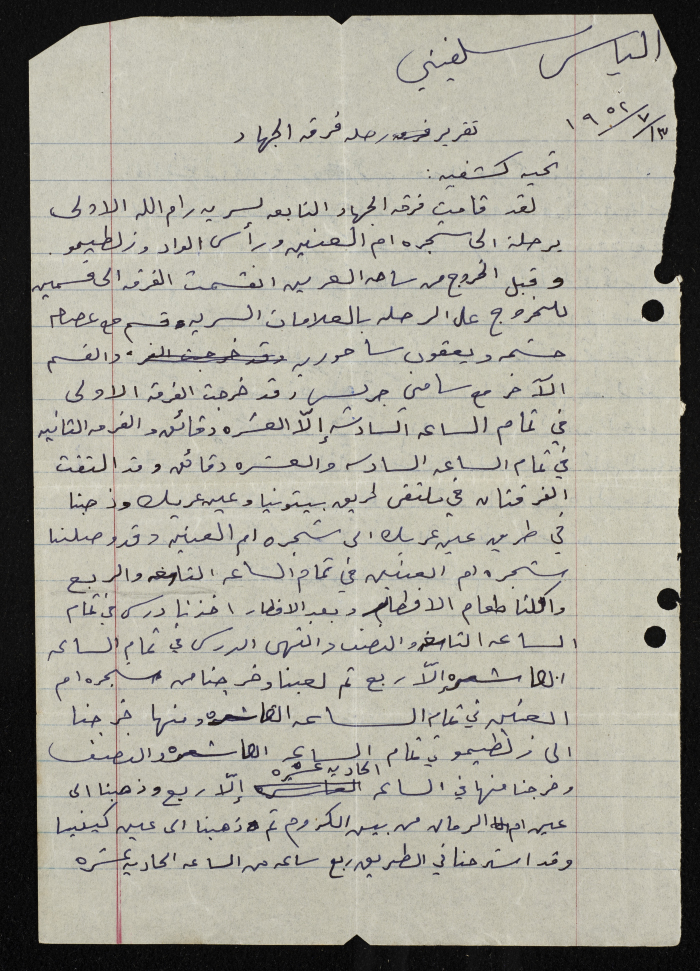 الياس سلفيتي
١٩٥٢/٧/١٣
تقرير رحله فرقه الجهاد
تحيه كشفيه :
لقد قامت فرقه الجهاد التابعه لسريه رام الله الاولى
برحلة الى شجره ام العنين ورأس الواد وزلطيمو
وقبل الخروج من ساحه العرين انقسمت الفرقه الى قسمين
للخروج على الرحله بالعلامات السريه وقسم مع عصام
حشمه ويعقوب ساحوريه وقد خرجت الفر والقسم
الآخر مع سامي جريس وقد خرجت الفرقه الاولى
في تمام الساعه السادسه إلّا العشره دقائق والفرقه الثانيه
في تمام الساعه السادسه والعشره دقائق وقد التقت
الفرقتان في ملتقى طريق بيتونيا وعين عريك وذهبنا
في طريق عين عريك الى شجره ام العنين وقد وصلنا
شجره ام العنين في تمام الساعه التاسعه والربع
واكلنا طعام الافطار وبعد الافطار اخذنا درس في تمام
الساعه التاسعه والنصف وانتهى الدرس في تمام الساعه
العاشره إلّا ربع ثم لعبنا وخرجنا من شجره ام
العنين في تمام الساعه العاشره ومنها خرجنا
الى زلطيمو في تمام الساعه العاشره والنصف
وخرجنا منها في الساعه العاشره الحاديه عشره إلّا ربع وذهبنا الى
عين ام الرمان من بين الكروم ثم ذهبنا الى عين كينيا
وقد استرحنا في الطريق ربع ساعه من الساعه الحاديه عشره